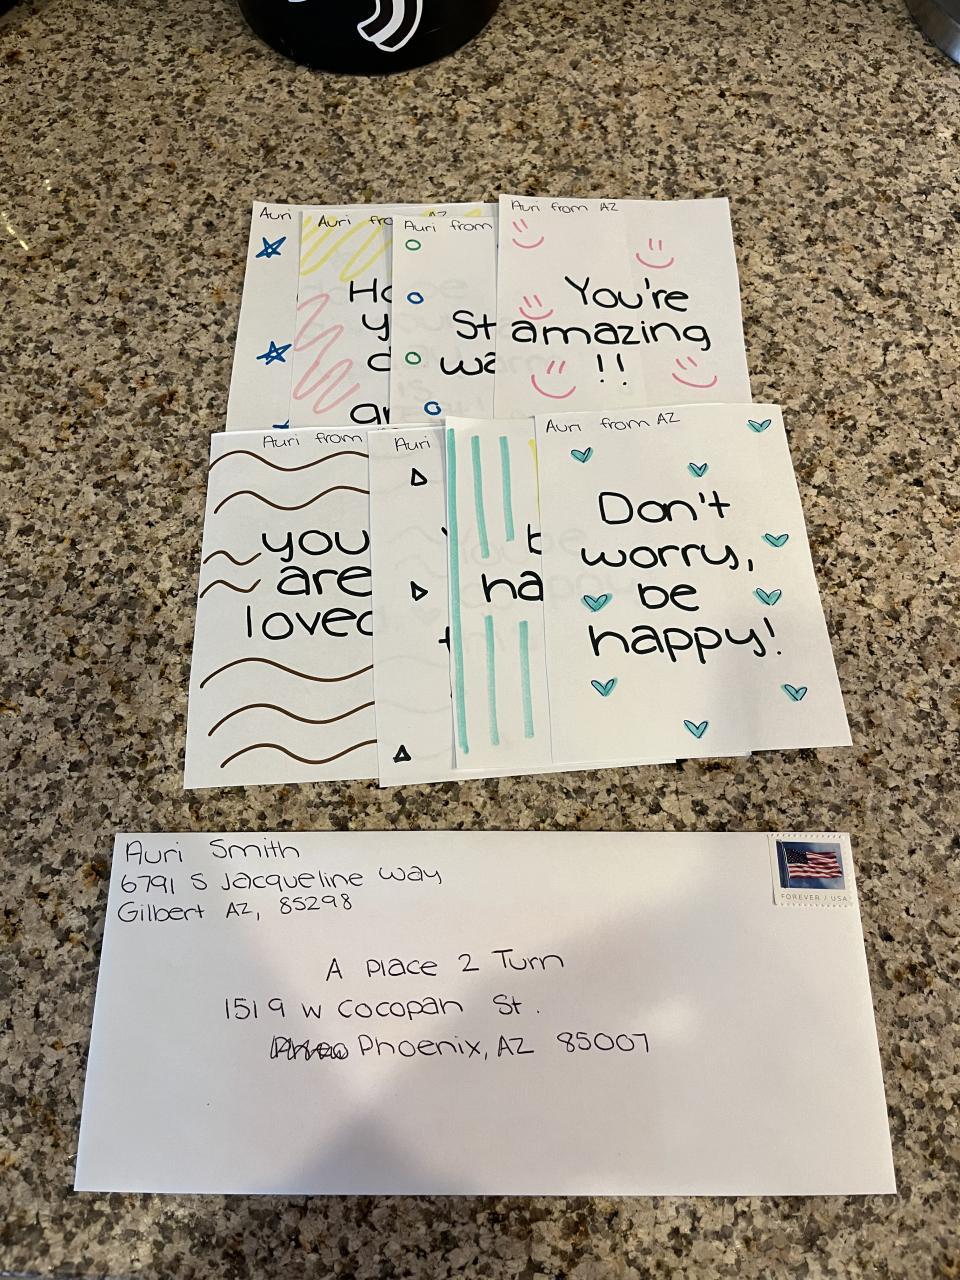 Auri
Auri fro AZ
Auri from
Auri from AZ
You're
amazing
!!
Auri from
you
are
loved
Auri
ha
Auri from AZ
Don't
worry,
be
happy!
Auri Smith
6791 S Jacqueline Way
Gilbert AZ, 85298
FOREVER / USA
A Place 2 Turn
1519 W Cocopah St.
Phoenix, AZ 85007